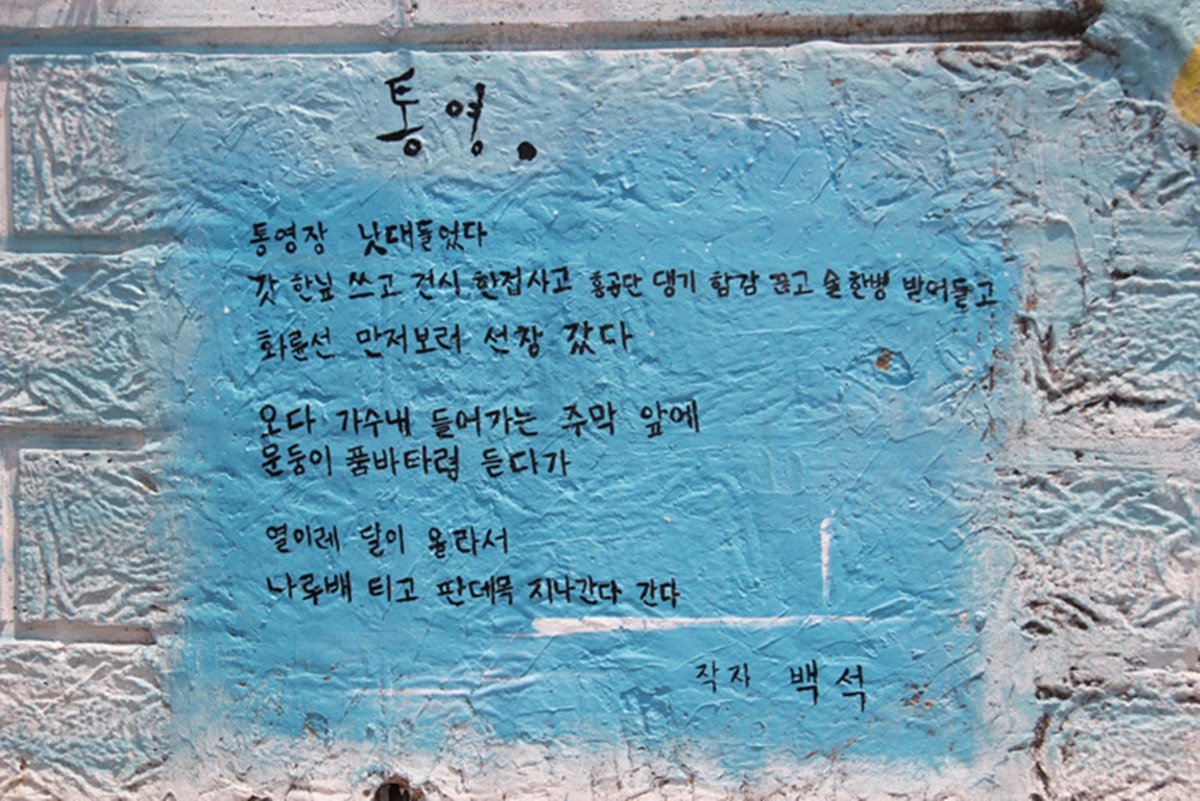 통영.
통영장 낫대들었다
갓 한닢 쓰고 건시 한접사고 홍공단 댕기 한감 끊고 술한병 받어들고
화륜선 만저보려 선창 갔다
오다 가수내 들어가는 주막 앞에
문둥이 품바타령 듣다가
열이레 달이 올라서
나루배 타고 판데목 지나간다 간다
작자 백석